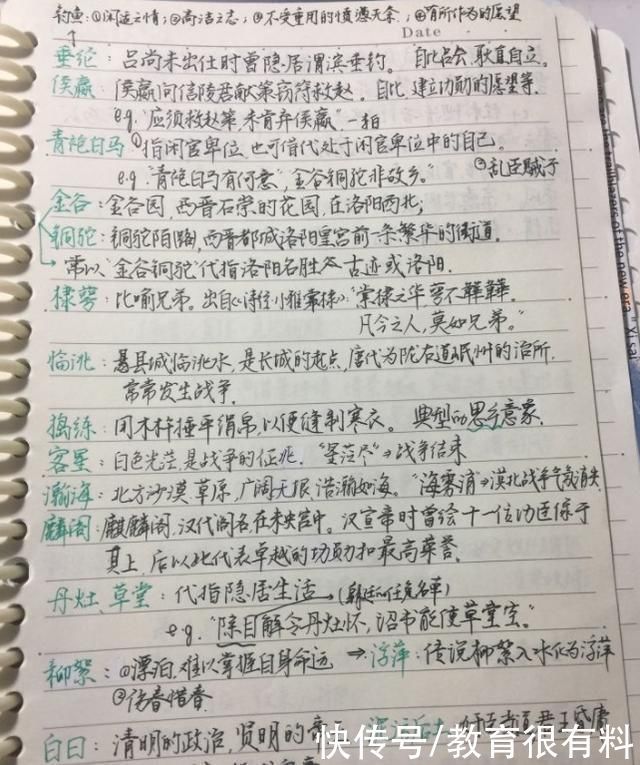 钓鱼:①闲适之情;②高洁之志;③不受重用的愤懑无奈;④有所作为的愿望
Date
垂纶:吕尚未出仕时曾隐居渭滨垂钓。自比吕尚,耿直自立。
侯嬴:侯嬴向信陵君献策窃符救赵。自比,建立功勋的愿望等.
e.g.“应须救赵策,未肯弃侯嬴”一拍
青袍白马①指闲官卑位,也可借代处于闲官卑位中的自己。
e.g.“青袍白马有何意,金谷铜驼非故乡。” ②乱臣贼子
金谷:金谷园,西晋石崇的花园,在洛阳西北;
铜驼:铜驼陌路,西晋都城洛阳皇宫前一条繁华的街道.
常以“金谷铜驼”代指洛阳名胜古迹或洛阳.
棣萼:比喻兄弟。出自《诗经·小雅·棠棣》:“棠棣之华,萼不韡韡.
凡今之人,莫如兄弟。”
临洮:县城临洮水,是长城的起点,唐代为陇右道岷州的治所.
常常发生战争.
捣练:用木杵捶平绢帛,以便缝制寒衣。典型的思乡意象.
客星:白色光芒,是战争的征兆.“星芒尽”→战争结束
瀚海:北方沙漠草原,广阔无垠,浩瀚如海。“海雾消”→漠北战争气氛消失
麟阁:麒麟阁,汉代阁名,在未央宫中。汉宣帝时曾绘十一位功臣像于
其上,后以此代表卓越的功勋和最高荣誉.
丹灶、草堂:代指隐居生活 (朝廷的任免名单)
e.g.“除目解令丹灶怀,诏书能使草堂空。”
柳絮:①漂泊,难以掌握自身命运 → 浮萍:传说柳絮入水化为浮萍
②伤春惜春
白日:清明的政治,贤明的帝
快传号/教育很有料